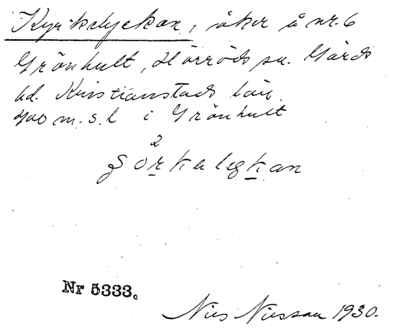 Kyrkelyckan, åker å nr. 6
Grönhult, Hörröds sn. Gärds
hd. Kristianstads län.
400 m. s. l i Grönhult
2
Nr 5333.
Nils Nilsson 1930.